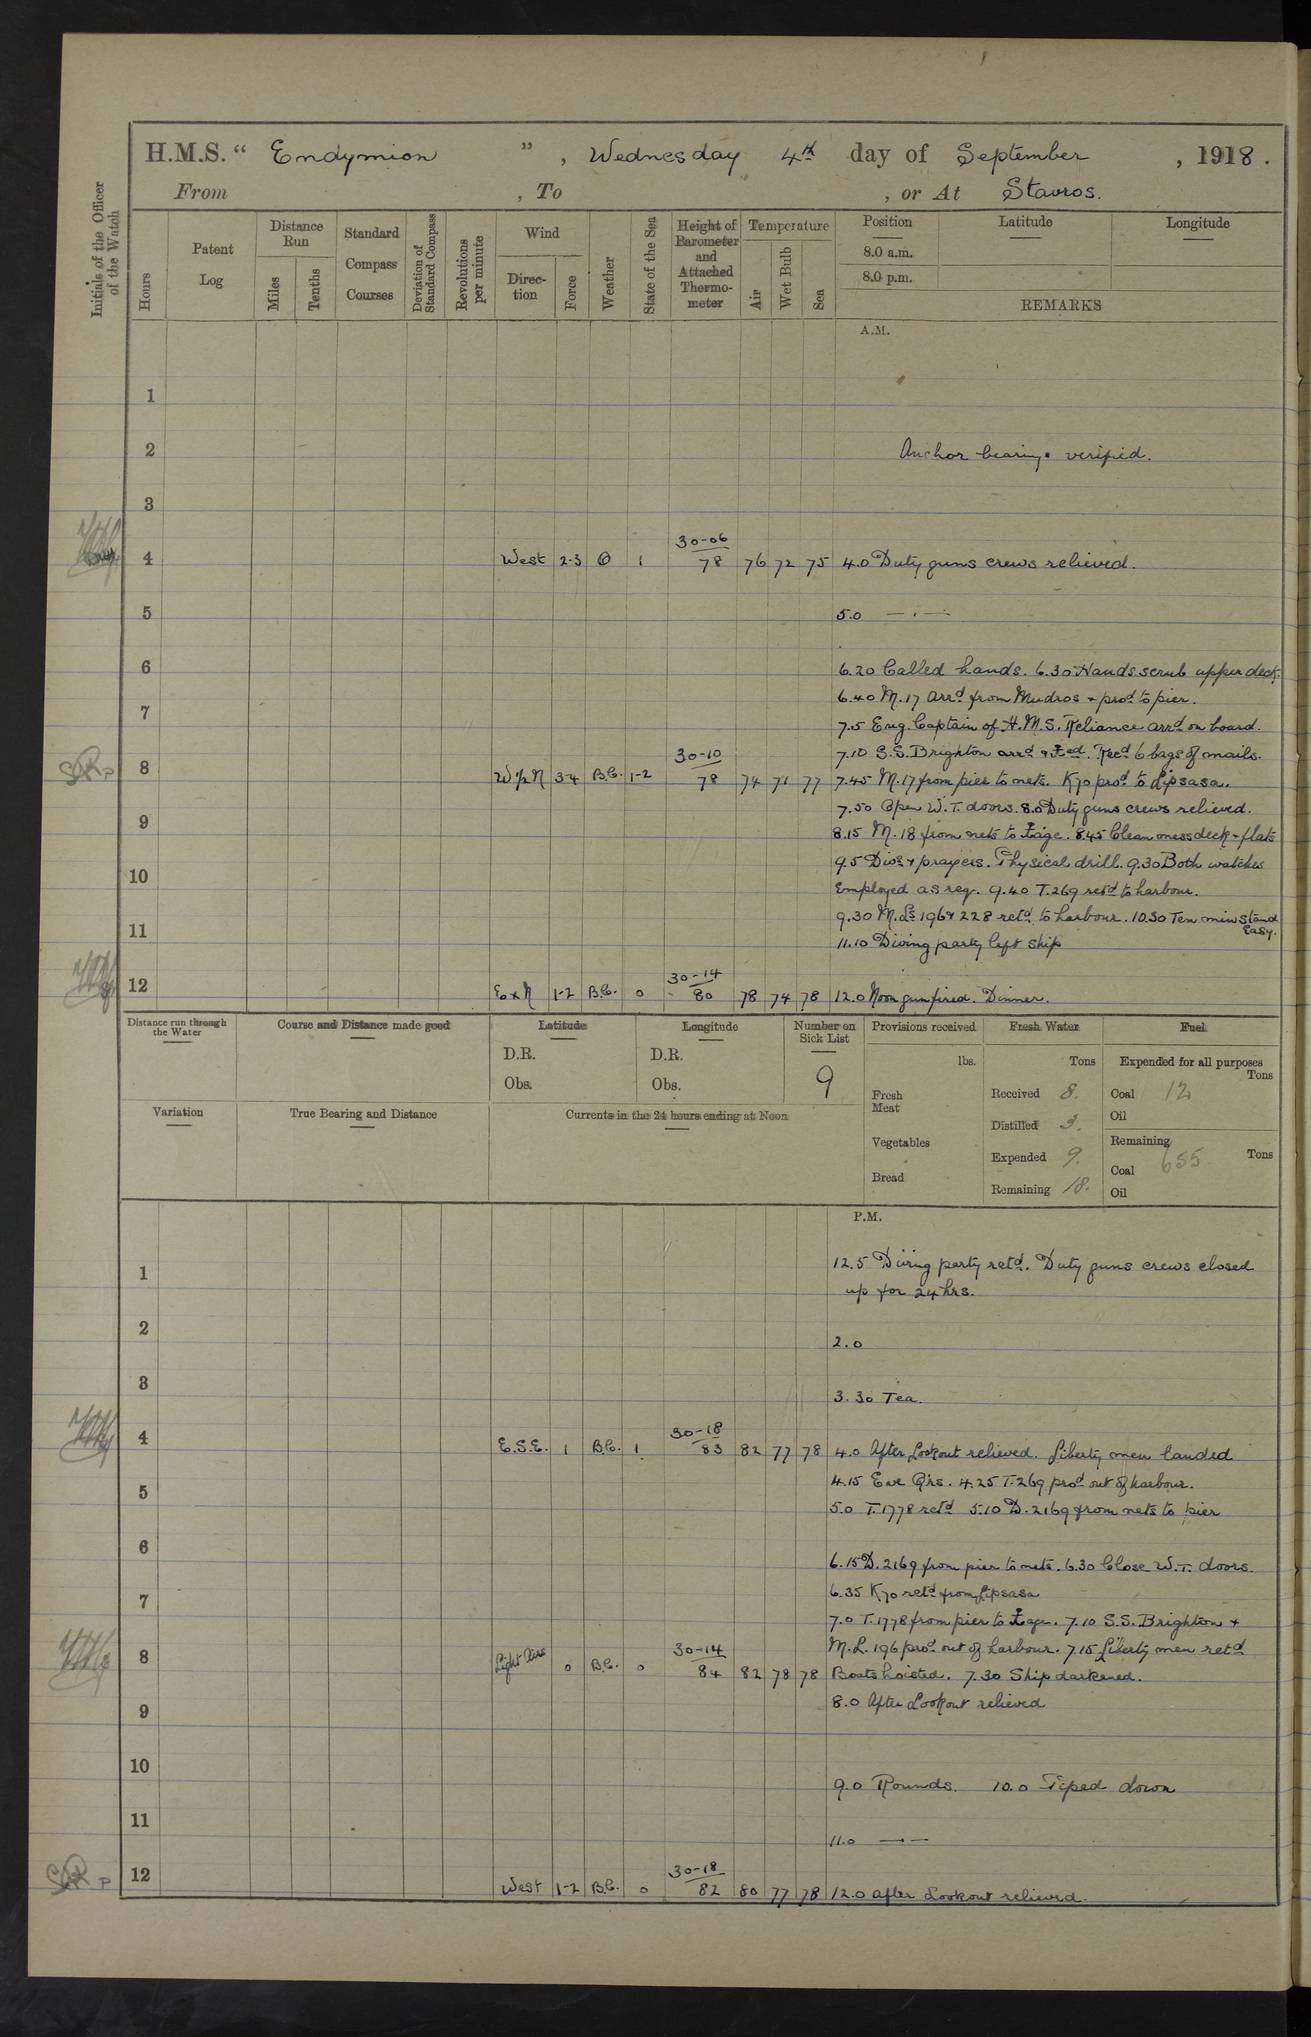 H.M.S. “ Endymion ” , Wednesday 4th day of September , 1918 .
From , To , or At Stavros.
Initials of the Officer of the Watch
Hours
Patent Log
Distance Run
Miles
Tenths
Standard Compass Courses
Deviation of Standard Compass
Revolutions per minute
Wind
Direction
Force
Weather
State of the Sea
Height of Barometer and Attached Thermometer
Temperature
Air
Wet Bulb
Sea
Position
8.0 a.m.
8.0 p.m.
Latitude
Longitude
REMARKS
A.M.
1
2 Anchor bearings verified.
3
30-06
4 West 2-3 O 1 78 76 72 75 4.0 Duty guns crews relieved.
5 5.0 — . —
6 6.20 Called hands. 6.30 Hands scrub upper deck.
6.40 M.17 arrd from Mudros + procd to pier.
7 7.5 Eng. Captain of H.M.S. Reliance arrd on board.
30-10
7.10 S.S. Brighton arrd & Ʇed. Recd 6 bags of mails.
8 W½N 3-4 B.C. 1-2 78 74 71 77 7.45 M.17 from pier to nets. K70 procd to Lipsasa.
7.50 Open W.T. doors. 8.0 Duty guns crews relieved.
9 8.15 M.18 from nets to age. 8.45 Clean messdeck + flats
9.5 Divns + prayers. Physical drill. 9.30 Both watches
10 Employed as req. 9.40 T.269 retd to harbour.
9.30 M.Ls 196 + 228 retd to harbour. 10.30 Ten mins stand easy.
11 11.10 Diving party left ship
30-14
12 E x N 1-2 B.C. 0 80 78 74 78 12.0 Noon gun fired. Dinner.
Distance run through the Water
Course and Distance made good
Latitude
D.R.
Obs.
Longitude
D.R.
Obs.
Number on Sick List
9
Provisions received
lbs.
Fresh Meat
Vegetables
Bread
Fresh Water
Tons
Received 8.
Distilled 3.
Expended 9.
Remaining 18.
Fuel
Expended for all purposes
Tons
Coal 12
Oil
Remaining
Tons
Coal 655.
Oil
Variation
True Bearing and Distance
Currents in the 24 hours ending at Noon
P.M.
12.5 Diving party retd. Duty guns crews closed
1 up for 24 hrs.
2 2.0
3 3.30 Tea.
30-18
4 E.S.E. 1 B.C. 1 83 82 77 78 4.0 After Lookout relieved. Liberty men landed
4.15 Eve Qrs. 4.25 T.269 procd out of harbour.
5 5.0 T.1778 retd 5.10 D.2169 from nets to pier
6 6.15 D.2169 from pier to nets. 6.30 Close W.T. doors.
6.35 K70 retd from Lipsasa
7 7.0 T.1778 from pier to age. 7.10 S.S. Brighton +
30-14
M.L. 196 procd out of harbour. 7.15 Liberty men retd
8 Light Airs 0 B.C. 0 84 82 78 78 Boats hoisted. 7.30 Ship darkened.
8.0 After Lookout relieved
9
10 9.0 Rounds. 10.0 Piped down
11 11.0 — . —
30-18
12 West 1-2 B.C. 0 82 80 77 78 12.0 After Lookout relieved.